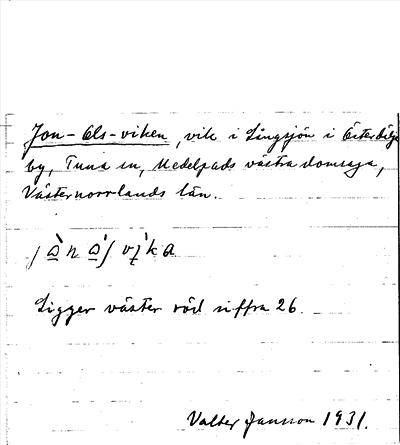 Jon-Ols-viken, vik i Långsjön i Österbölje
by, Tuna sn, Medelpads västra domsaga,
Västernorrlands län.
Ligger väster röd siffra 26.
Valter Jansson 1931.